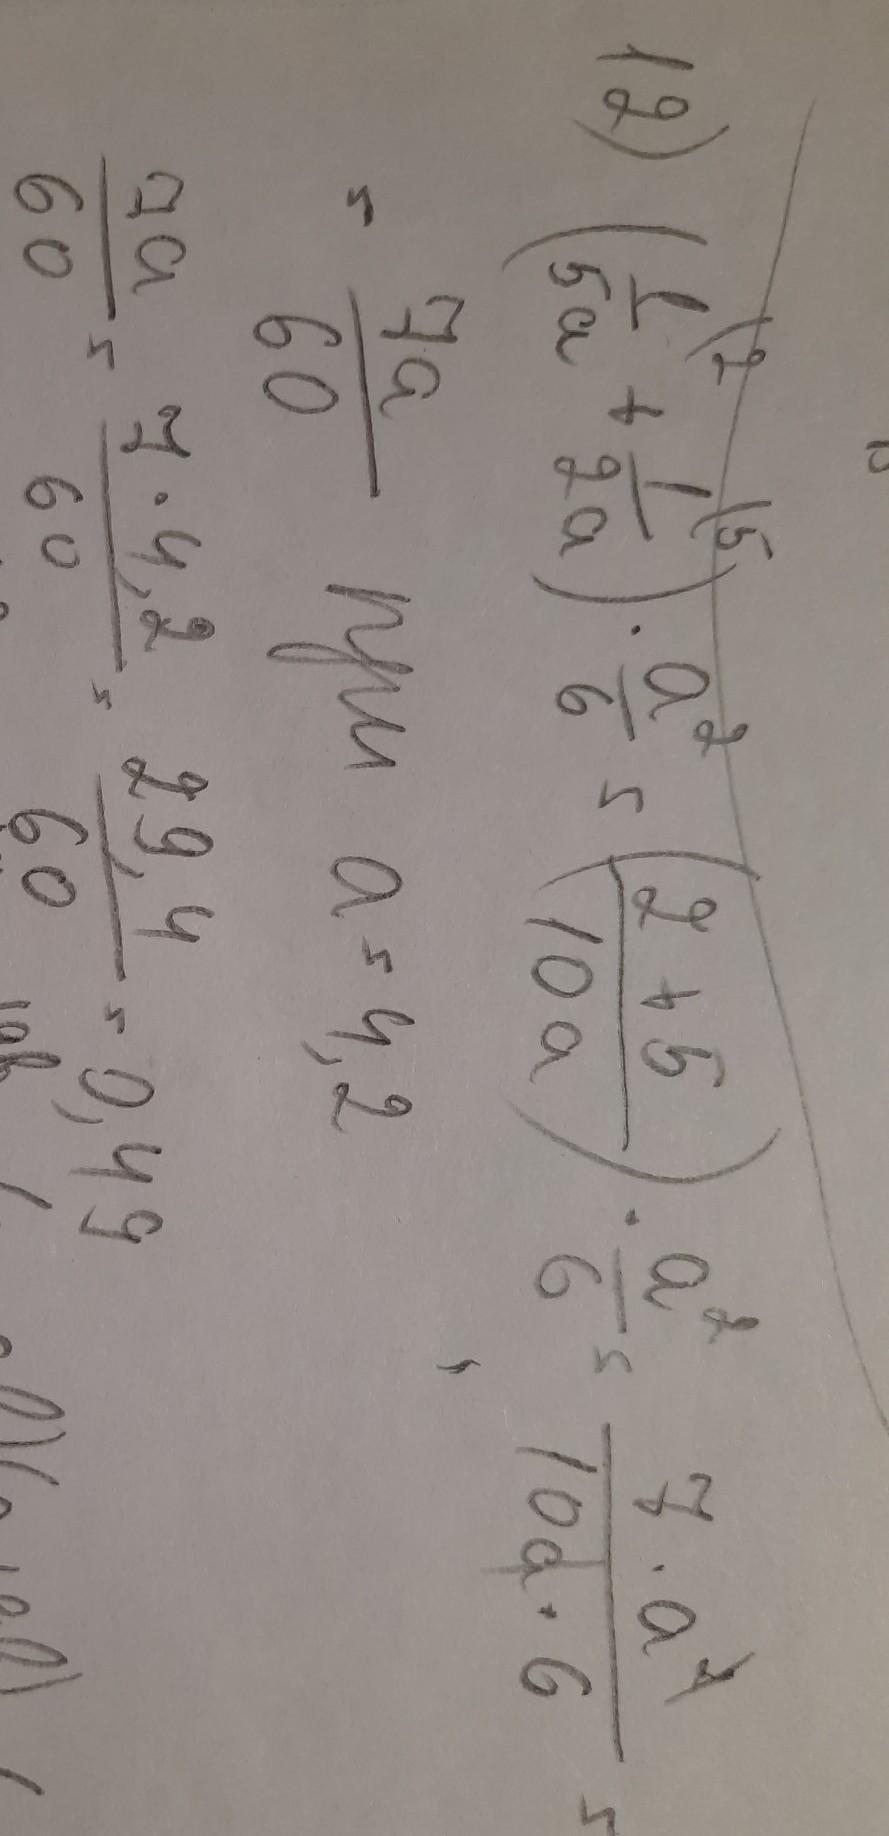 12) (1/5a \2 + 1/2a \5) · a²/6 = (2+5/10a) · a²/6 = 7·a²/10a·6 =
= 7a/60 при a = 4,2
7a/60 = 7·4,2/60 = 29,4/60 = 0,49